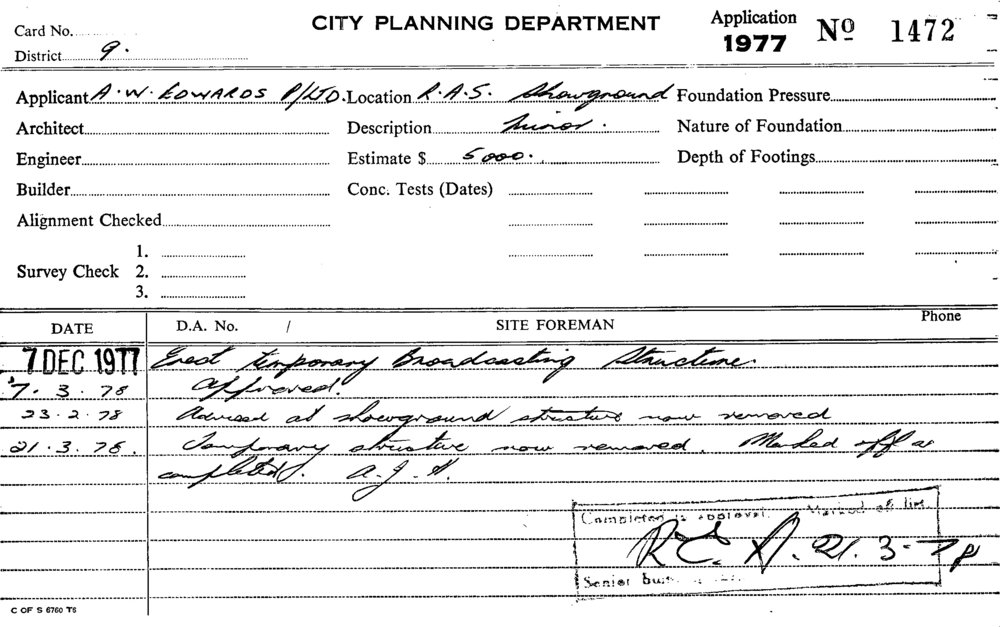 Card No. CITY PLANNING DEPARTMENT Application 1977 Nº 1472
District 9.
Applicant A.W. EDWARDS P/LTD. Location R.A.S. Showground Foundation Pressure
Architect Description Minor. Nature of Foundation
Engineer Estimate $ 5000. Depth of Footings
Builder Conc. Tests (Dates)
Alignment Checked
1.
Survey Check 2.
3.
DATE D.A. No. / SITE FOREMAN Phone
7 DEC 1977 Erect temporary Broadcasting Structure.
7.3.78 Approved.
23.2.78 Advised at showground structure now removed
21.3.78. Temporary structure now removed. Marked off as
completed. A.J.
Completed as approval. Marked off list.
R.C. 21.3.78
Senior
C OF S 6760 T6